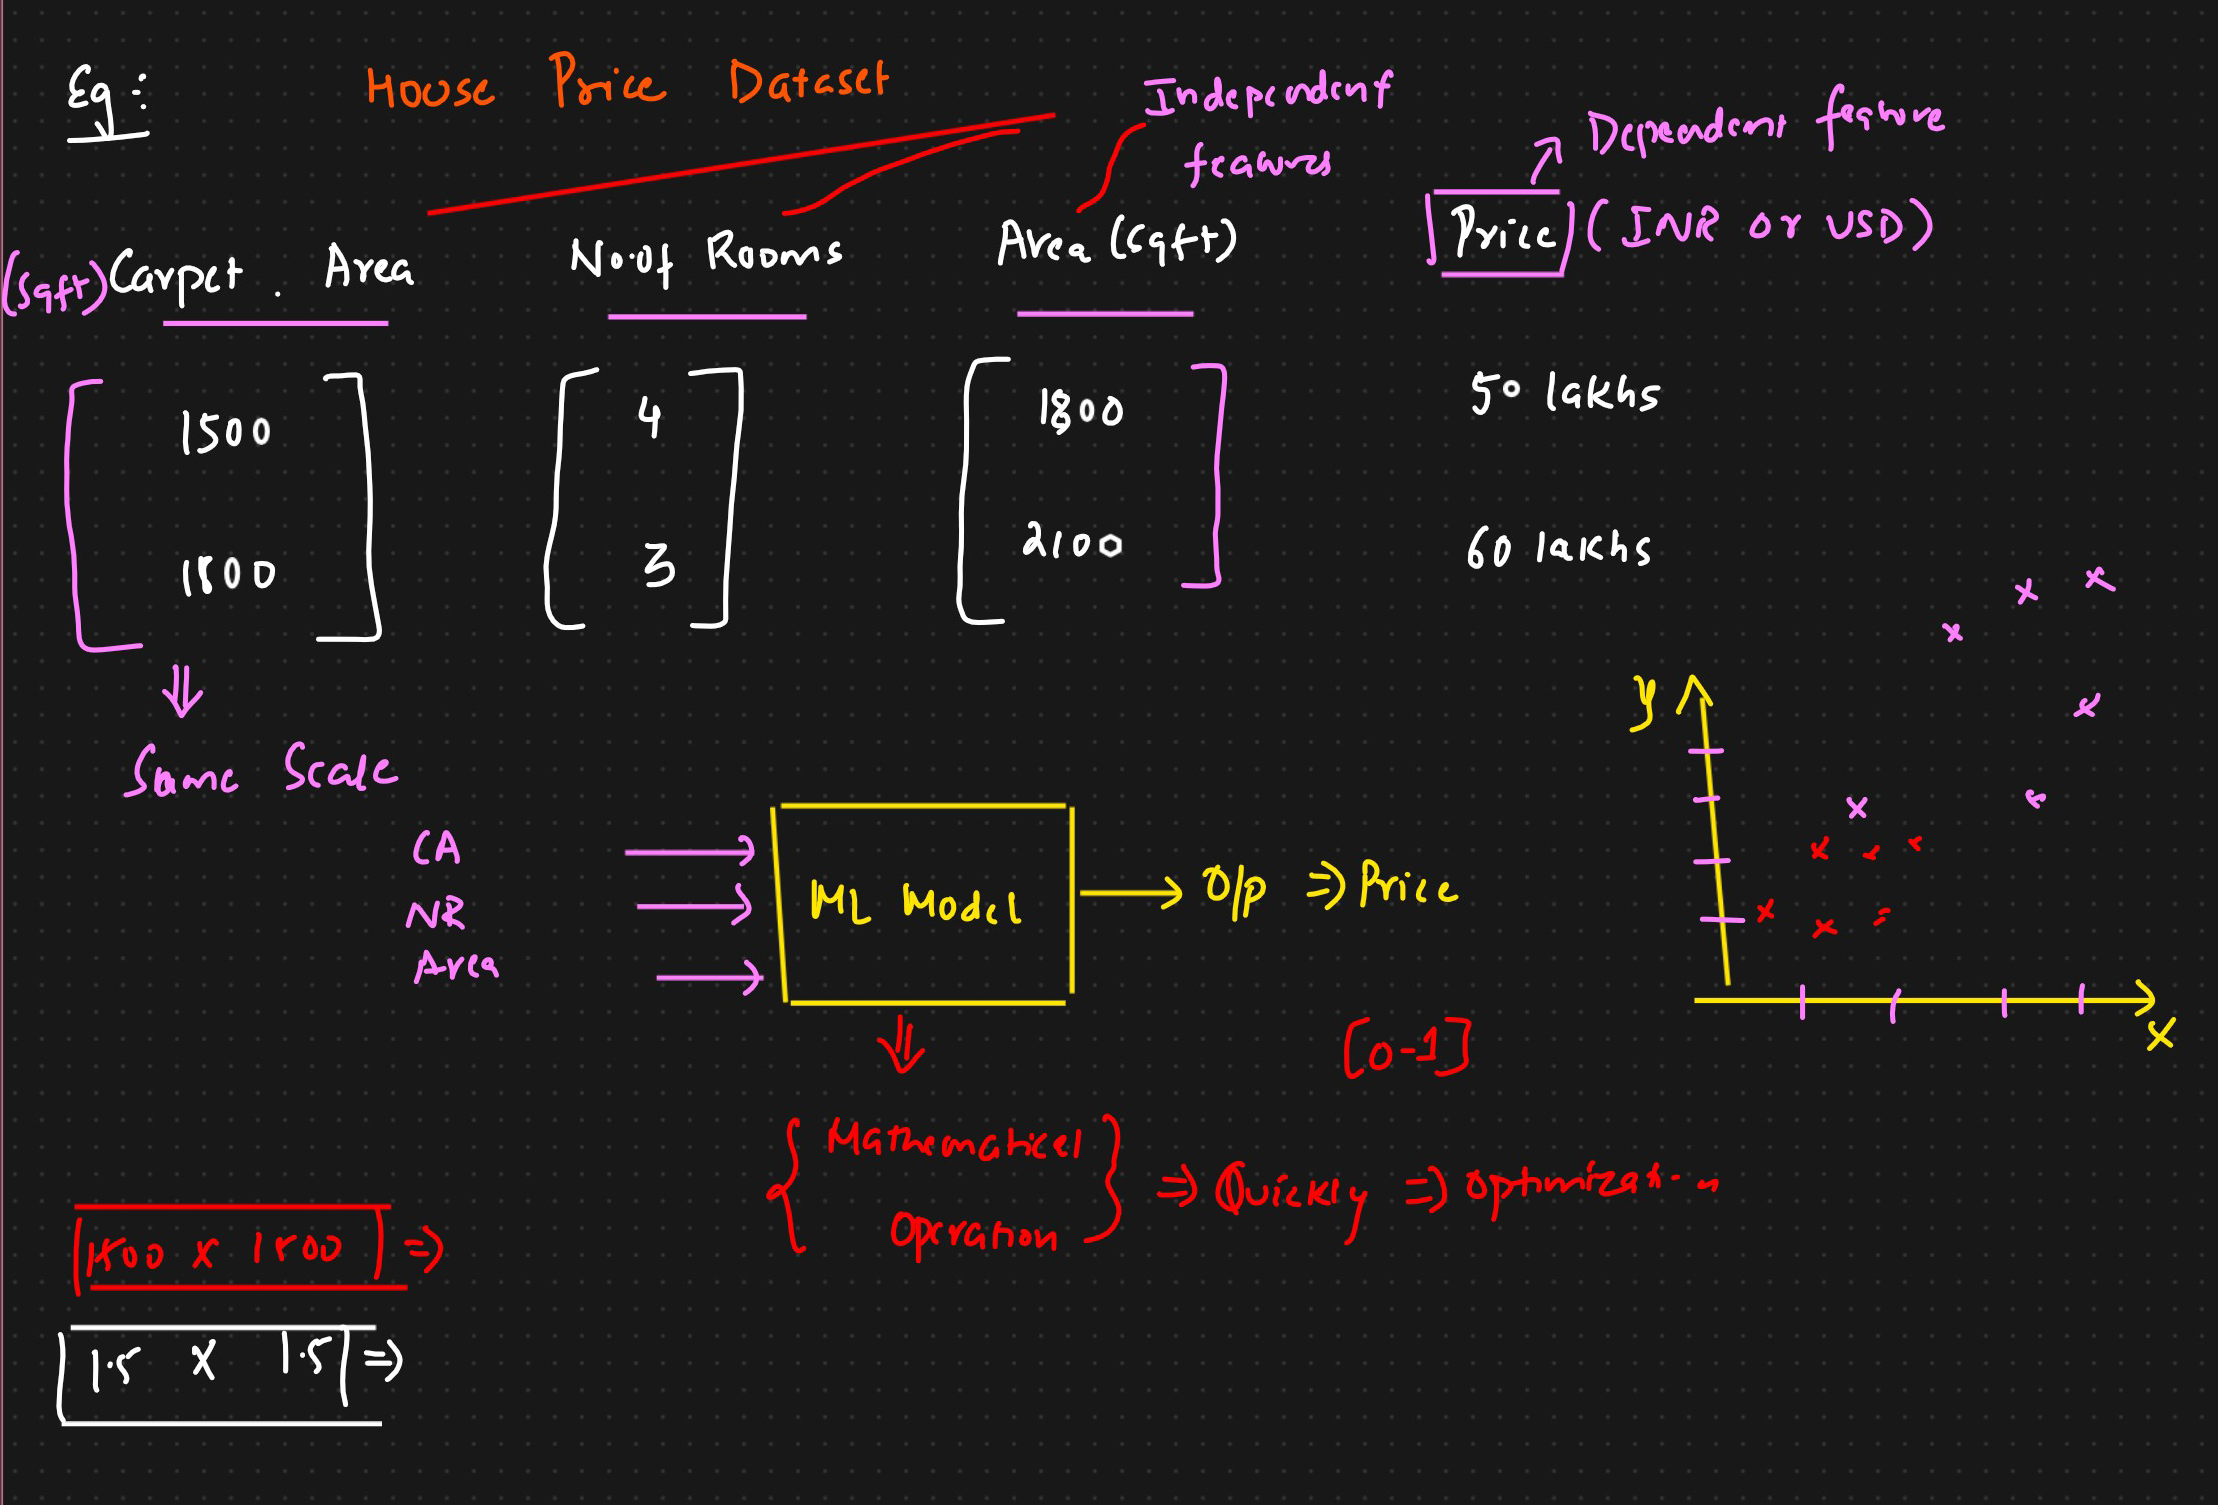 Eg :
House Price Dataset
Independent
features
Dependent feature
(sqft) Carpet . Area
No.of Rooms
Area (sqft)
Price (INR or USD)
1500
4
1800
50 lakhs
1800
3
2100
60 lakhs
Same Scale
y
CA
NR
Area
ML Model
O/p => Price
x
[0-1]
Mathematical
Operation
=> Quickly => Optimization
1500 x 1500 =>
1.5 x 1.5 =>